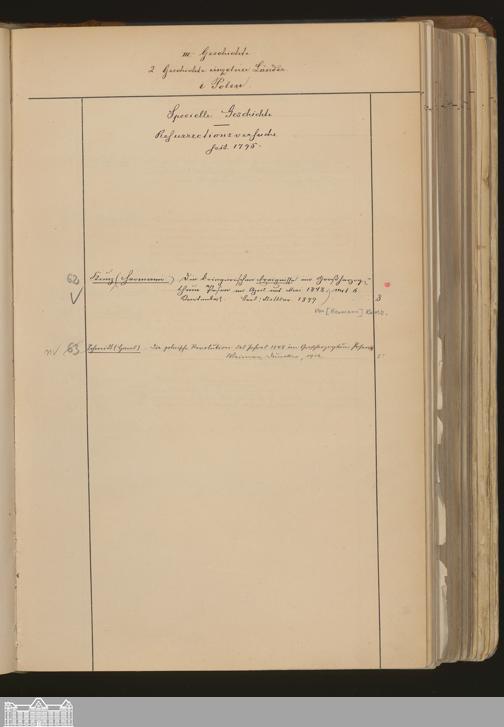 III Geschichte
2 Geschichte einzelner Länder
c Polen
Specielle Geschichte
Resurrectionsversuche
seit 1795.
62 Kunz (Hermann) Die kriegerischen Ereignisse im Großherzog-
thum Posen im April und Mai 1848, mit 6
Berl: Mittler 1899
3
von [Hermann] Kunz.
63 Schmidt (Hans) Die polnische Revolution des Jahres 1848 im Großherzogtum Posen
Weimar, Duncker, 1912